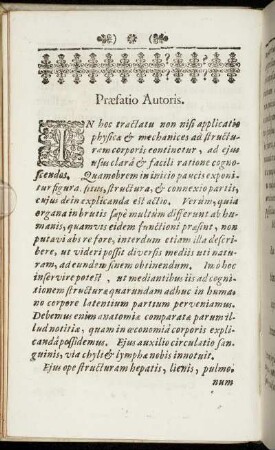 Præfatio Autoris.
IN hoc tractatu non nisi applicatio
physicæ & mechanices ad structu-
ram corporis continetur, ad ejus
usus clarâ & facili ratione cogno-
scendos. Quamobrem in initio paucis exponi-
tur figura, situs, structura, & connexio partis,
cujus dein explicanda est actio. Verùm, quia
organa in brutis sæpe multùm differunt ab hu-
manis, quamvis eidem functioni præsint, non
putavi abs re fore, interdum etiam illa descri-
bere, ut videri possit diversis mediis uti natu-
ram, ad eundem finem obtinendum. Imò hoc
inservire potest, ut mediantibus iis ad cogni-
tionem structuræ quarundam adhuc in huma-
no corpore latentium partium perveniamus.
Debemus enim anatomiæ comparatæ parum il-
lud notitiæ, quam in œconomiâ corporis expli-
candâ possidemus. Ejus auxilio circulatio san-
guinis, via chyli & lymphæ nobis innotuit.
Ejus ope structuram hepatis, lienis, pulmo-
num